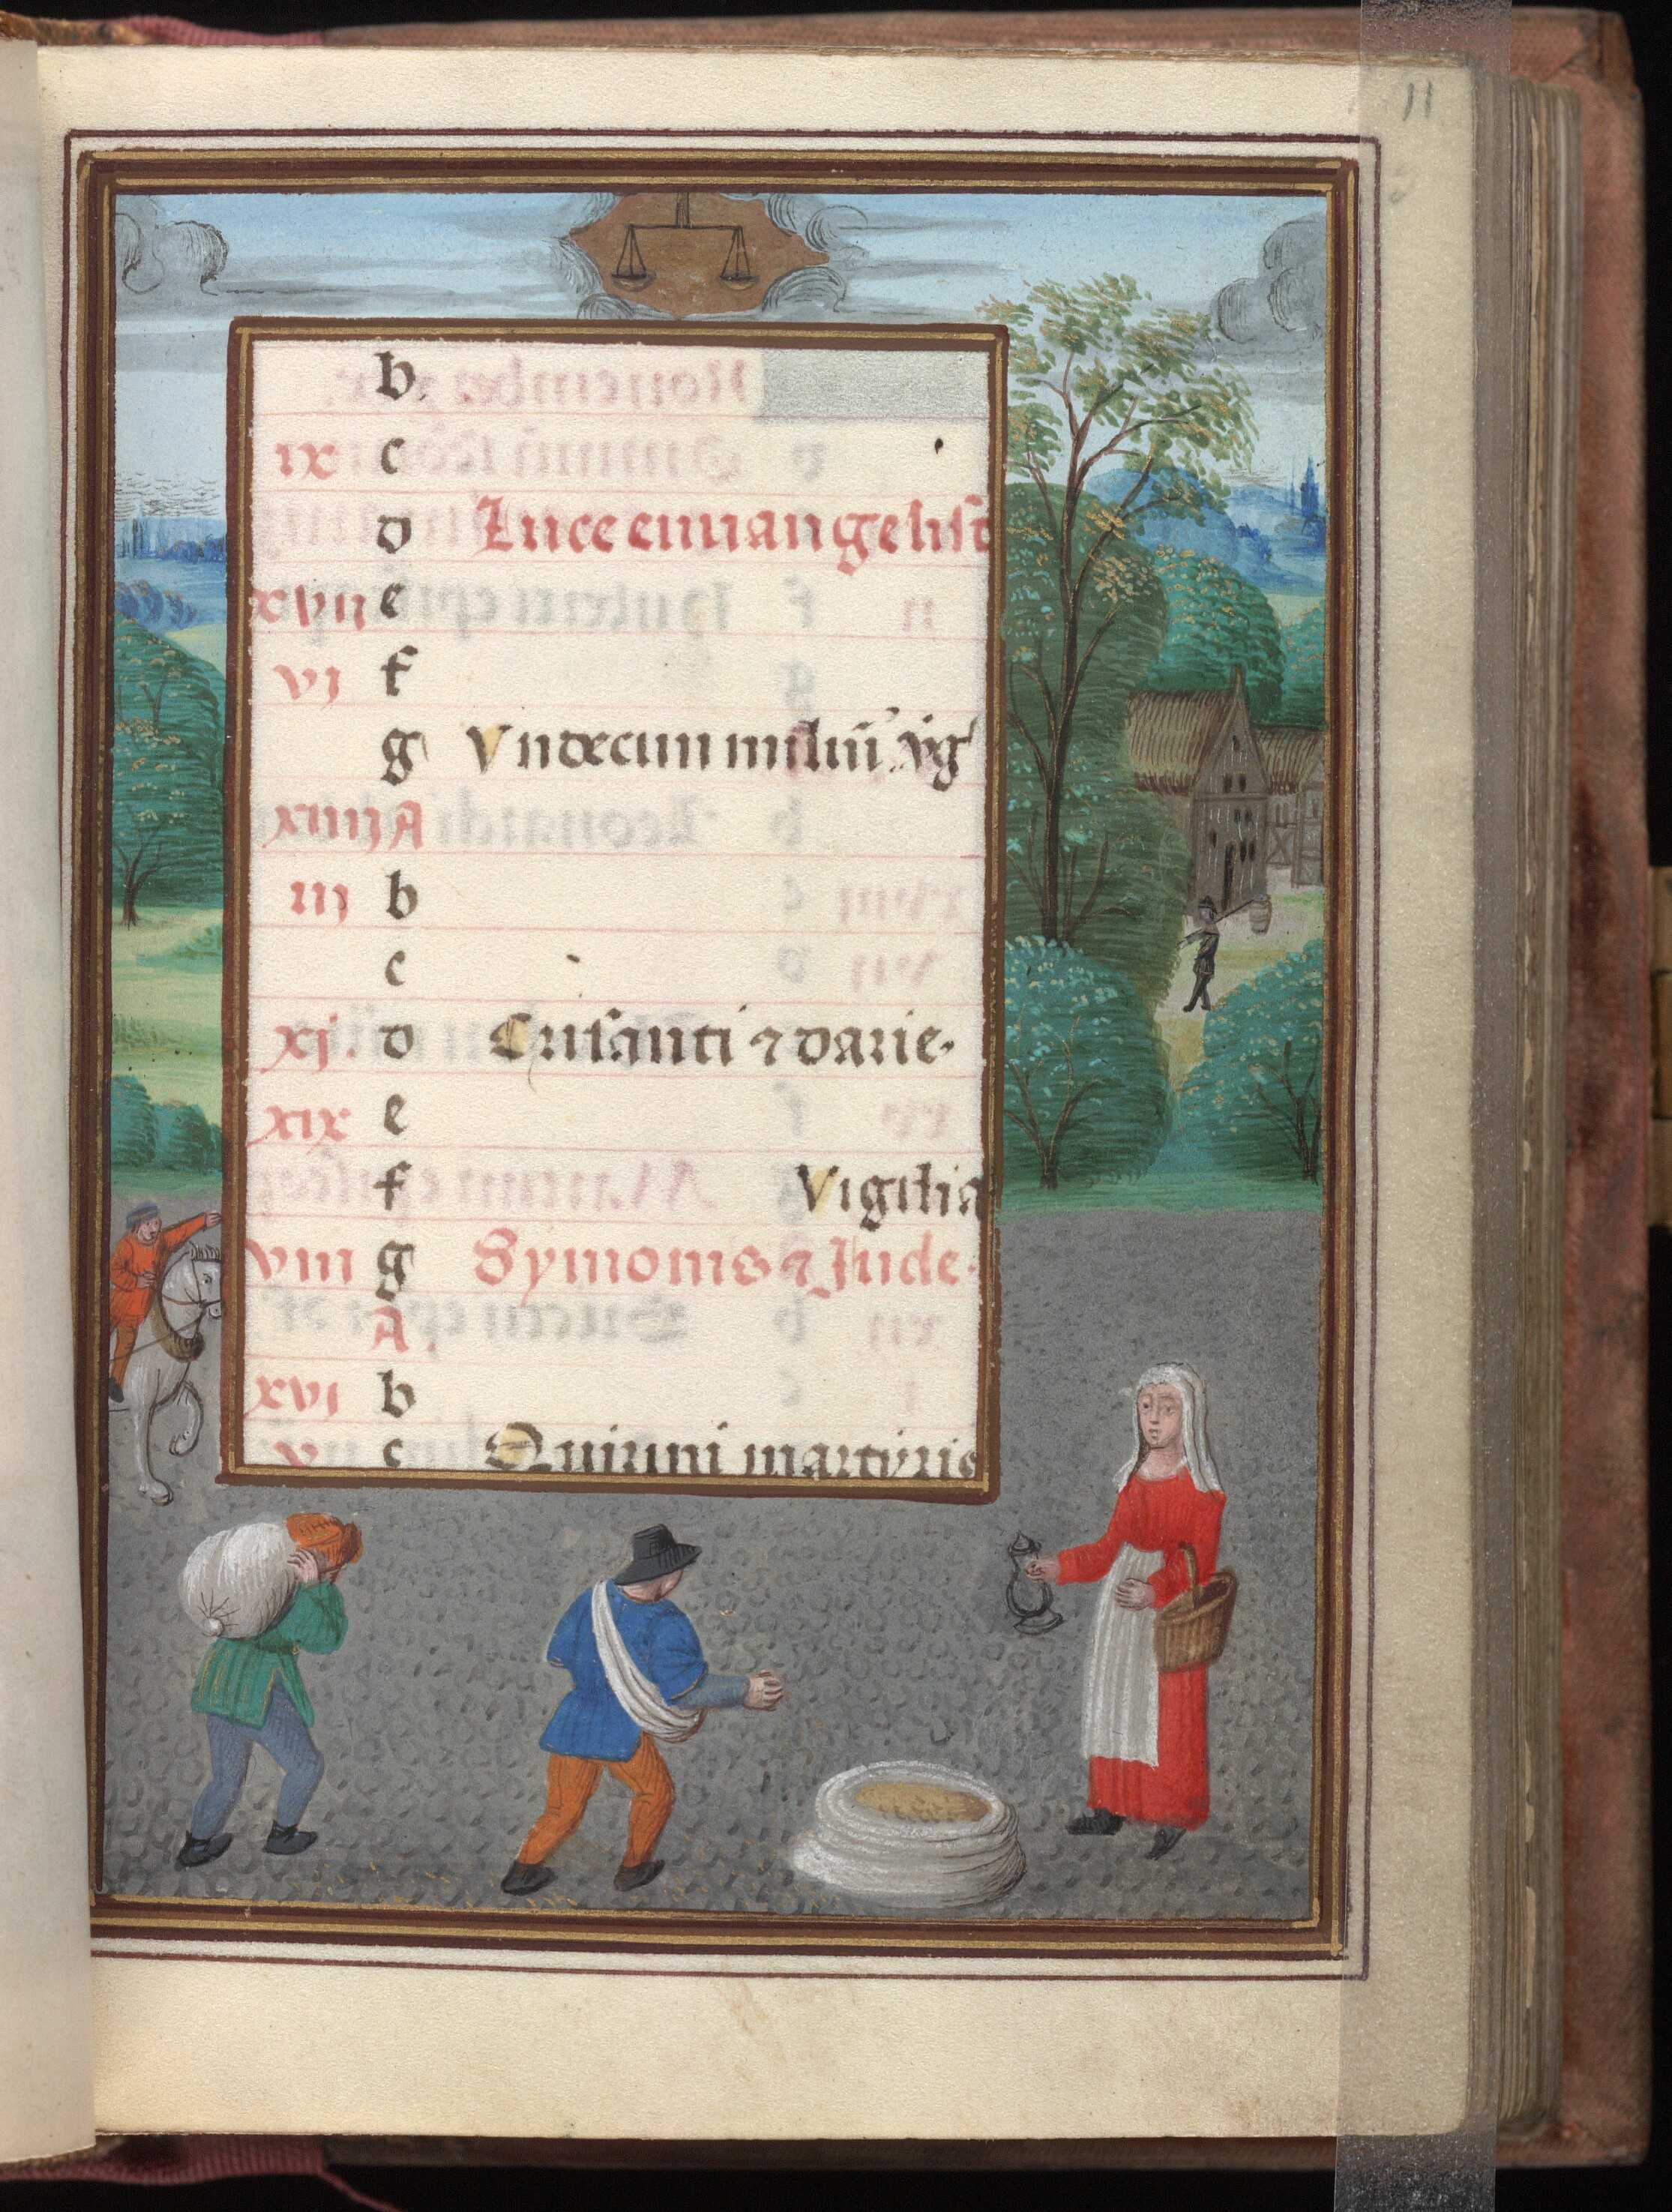 11
b
ix c
d Luce euuangelist
xvii e
vi f
g Vndecim miliū v̄ig
xiiij A
iij b
c
xj. d Crisanti ⁊ darie.
xix e
f Vigilia
viii g Symonis ⁊ Jude.
A
xvi b
v c Quirini martyris